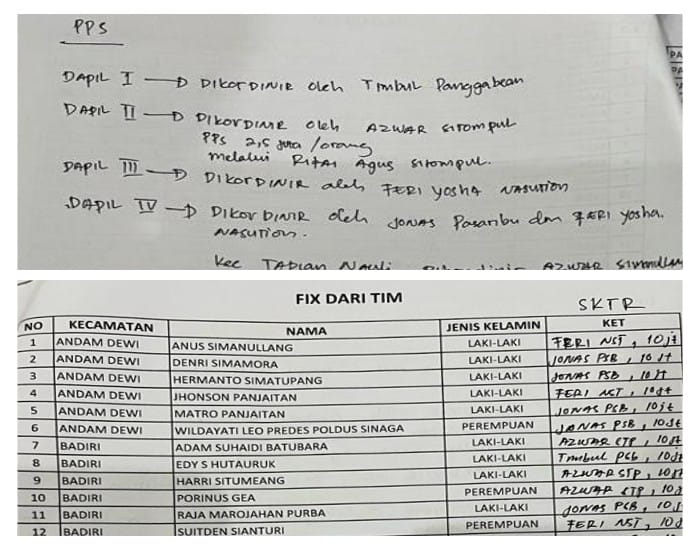 PPS
DAPIL I → DIKORDINIR oleh Timbul Panggabean
DAPIL II → DIKORDINIR oleh AZWAR sitompul
PPS 2,5 juta /orang
melalui RITAS Agus sitompul.
DAPIL III → DIKORDINIR oleh FERI yosha NASUTION
DAPIL IV → DIKORDINIR oleh JONAS Pasaribu dan FERI yosha.
NASUTION.
Kec TAPIAN NAULI AZWAR
FIX DARI TIM
SKTR
NO KECAMATAN NAMA JENIS KELAMIN KET
1 ANDAM DEWI ANUS SIMANULLANG LAKI-LAKI FERI NST, 10 jt
2 ANDAM DEWI DENRI SIMAMORA LAKI-LAKI JONAS PSB, 10 jt
3 ANDAM DEWI HERMANTO SIMATUPANG LAKI-LAKI JONAS PSB, 10 jt
4 ANDAM DEWI JHONSON PANJAITAN LAKI-LAKI FERI NST, 10 jt
5 ANDAM DEWI MATRO PANJAITAN LAKI-LAKI JONAS PSB, 10 jt
6 ANDAM DEWI WILDAYATI LEO PREDES POLDUS SINAGA PEREMPUAN JONAS PSB, 10 jt
7 BADIRI ADAM SUHAIDI BATUBARA LAKI-LAKI AZWAR STP, 10 jt
8 BADIRI EDY S HUTAURUK LAKI-LAKI Timbul PGB, 10 jt
9 BADIRI HARRI SITUMEANG LAKI-LAKI AZWAR STP, 10 jt
10 BADIRI PORINUS GEA PEREMPUAN AZWAR STP, 10 j
11 BADIRI RAJA MAROJAHAN PURBA LAKI-LAKI JONAS PSB, 10 j
12 BADIRI SUITDEN SIANTURI PEREMPUAN FERI NST, 10